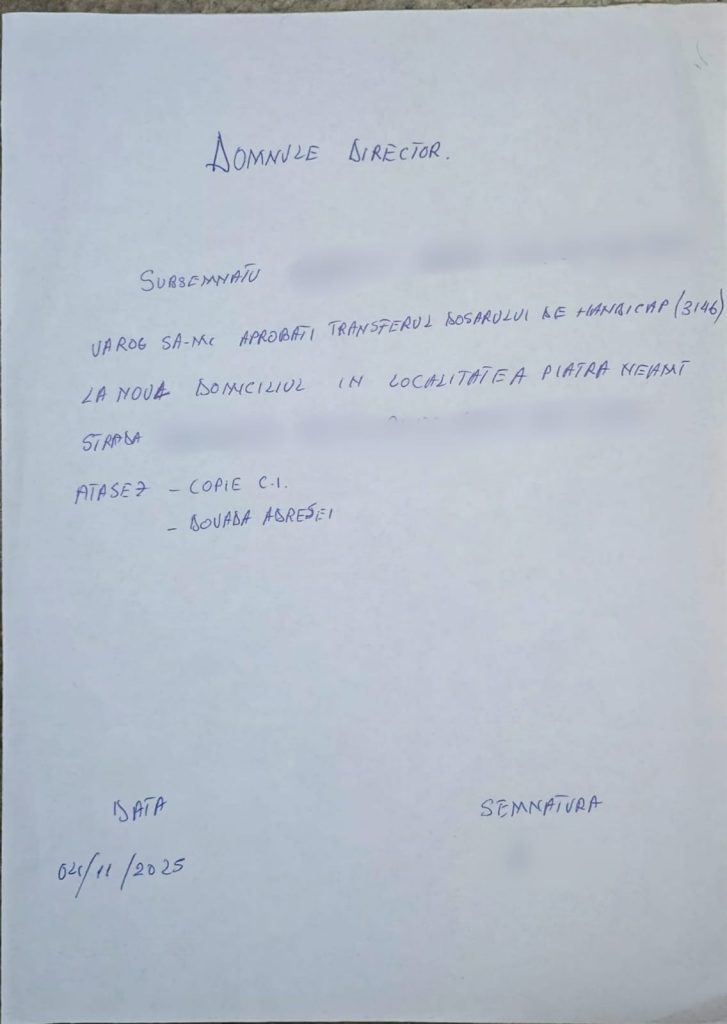 DOMNULE DIRECTOR.
SUBSEMNATU
VA ROG SA-MI APROBATI TRANSFERUL DOSARULUI DE HANDICAP (3146)
LA NOUA DOMICILIUL IN LOCALITATEA PIATRA NEAMT
STRADA
ATASEZ - COPIE C.I.
- DOVADA ADRESEI
DATA
SEMNATURA
04/11/2025